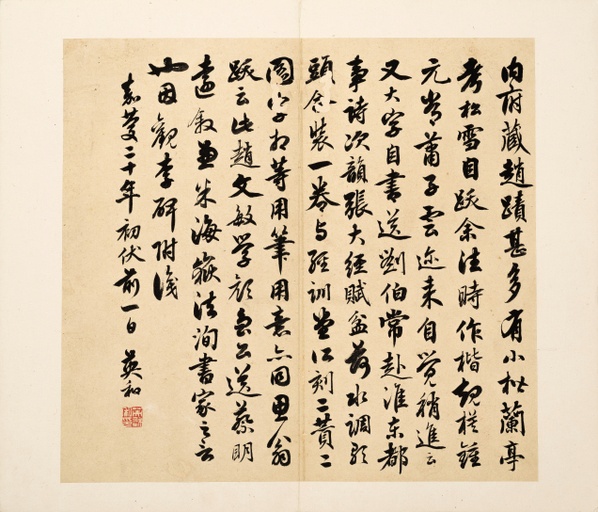 内府藏趙蹟甚多有小楷蘭亭
考松雪自跋余法時作楷規橅鍾
元常蕭子雲迩来自覺稍進云
又大字自書送劉伯常赴淮东都
事詩次韻張大經賦盆荷水調歌
頭合裝一卷与經訓堂所刻二贊二
圖字相等用筆用意亦同思翁
跋云此趙文敏學顔魯公送蔡明
遠敘兼米海嶽法洵書家之言
也因觀李碑附識
嘉慶二十年初伏前一日 英和